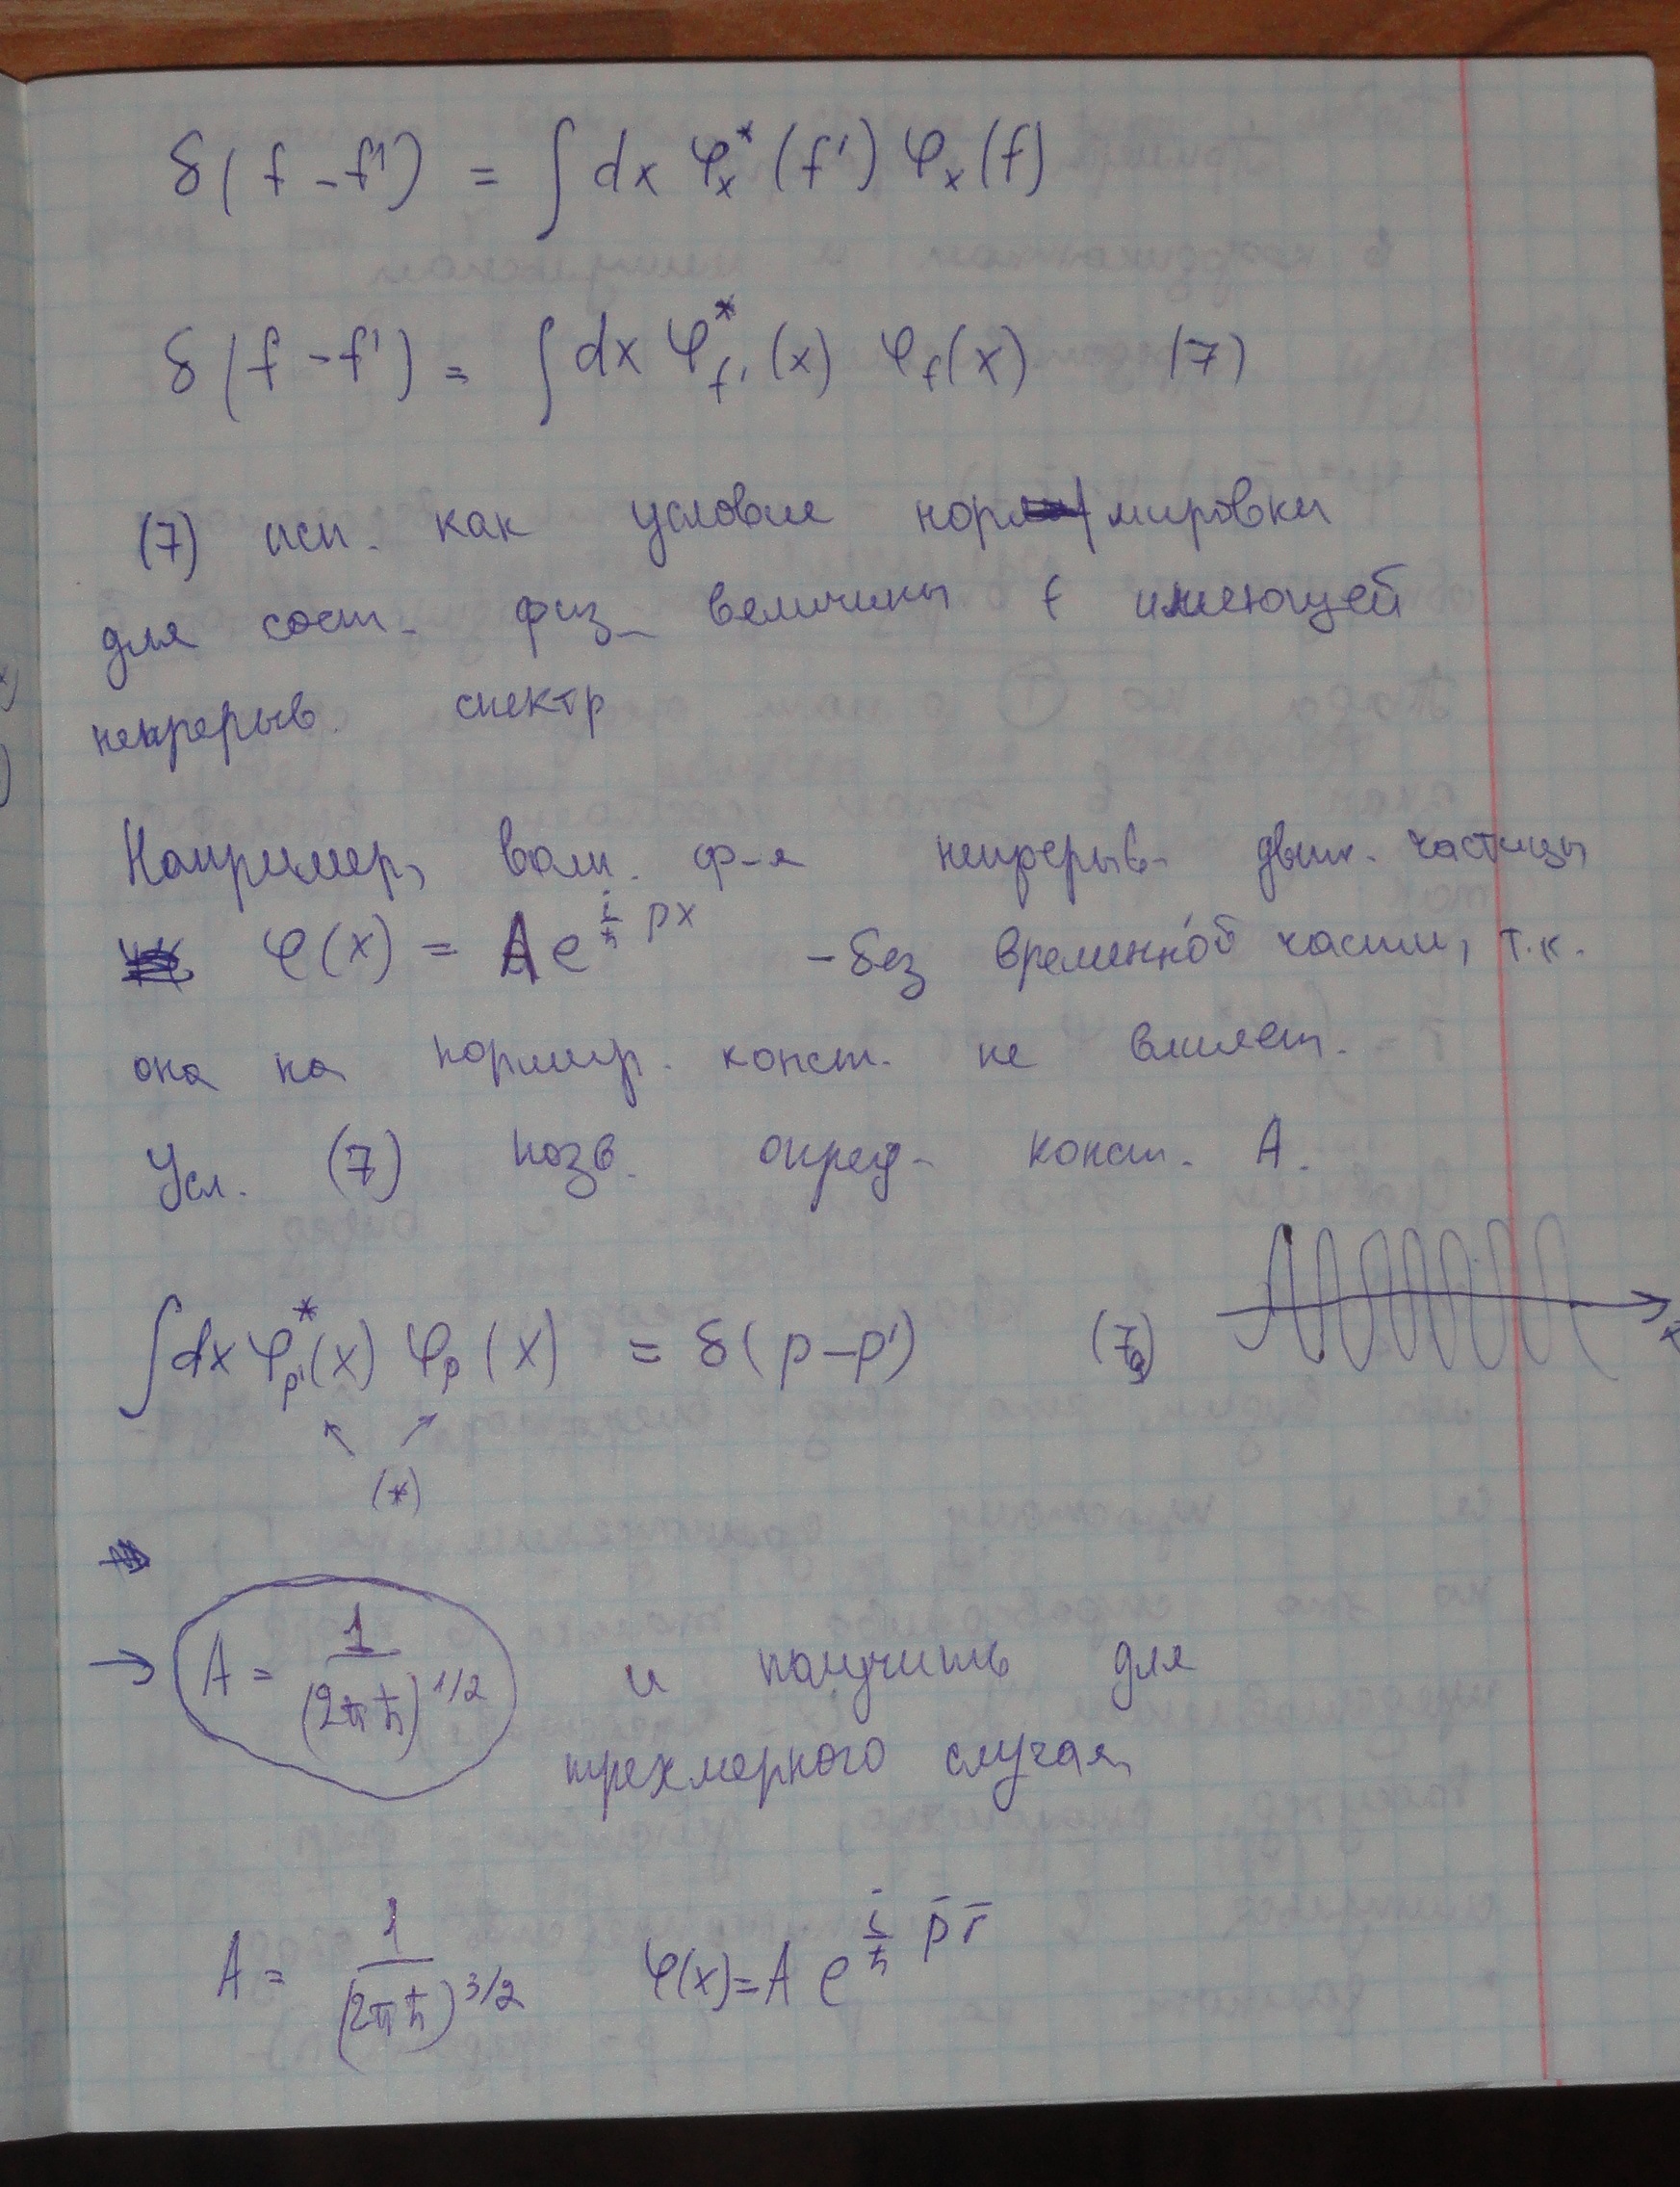 δ(f - f') = ∫ dx φₓ*(f') φₓ(f)
δ(f - f') = ∫ dx φ*_f'(x) φ_f(x) (7)
(7) исп. как условие нормировки
для сост. физ. величины f имеющей
непрерыв. спектр
Например, волн. ф-я непрерыв. движ. частицы
φ(x) = A e^{i/ħ px} - без временно́й части, т.к.
она на нормир. конст. не влияет.
Усл. (7) позв. опред. конст. A.
∫ dx φ*_p'(x) φ_p(x) = δ(p - p') (7a)
(*)
→ A = 1/(2πħ)^{1/2} и получить для
трехмерного случая
A = 1/(2πħ)^{3/2} φ(x) = A e^{i/ħ p̄r̄}